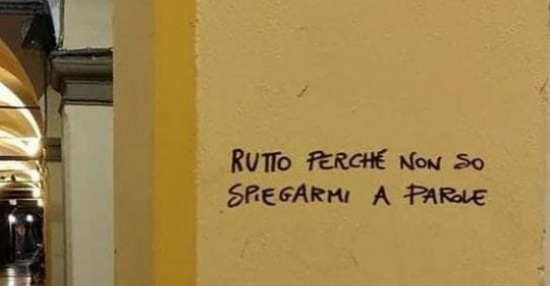 RUTTO PERCHÉ NON SO
SPIEGARMI A PAROLE